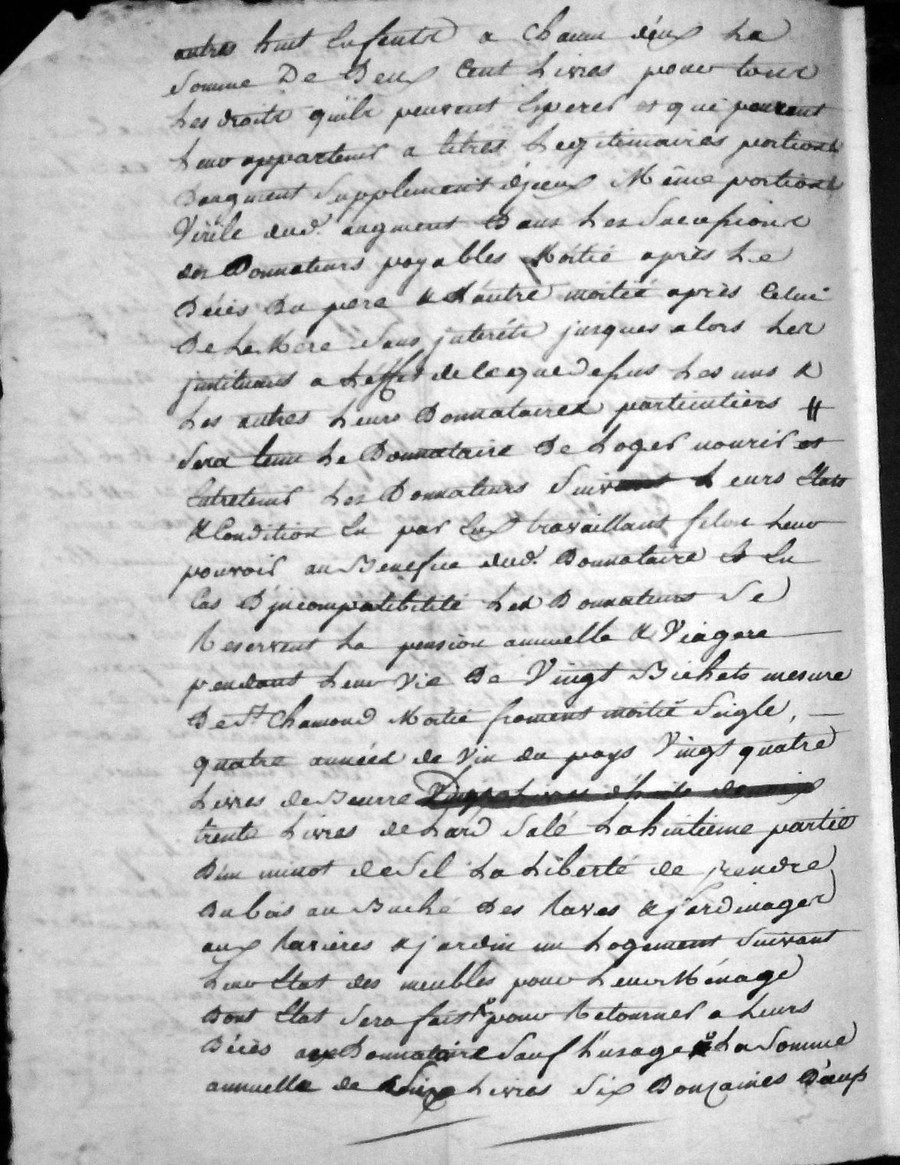 autres huit Enfents a Chacun d'eux La
Somme De Deux Cent Livres pour tous
Les droits qu'ils peuvent Esperer et qui peuvent
Leur appartenir a titres Legitimaires portions
Daugment Supplement d'jceux Même portions
Virile dud. augment Dans Les Successions
des Donnateurs payables Moitié après Le
Décès Du pere & L'autre moitié après Celui
De La Mere Sans jnterêts jusques alors Les
jnstituans a L'effet de ce que dessus Les uns &
Les autres Leurs Donnataires particuliers #
Sera tenu Le Donnataire De Loger nourir et
Entretenir Les Donnateurs Suivant Leurs Etats
& Condition En par Eux travaillant selon Leur
pouvoir au Benefice dud. Donnataire Et En
Cas D'jncompatibilité Les Donnateurs Se
Reservent La pension annuelle & Viagere
pendant Leur Vie De Vingt Bichets mesure
De St. Chamond Moitié froment moitié Seigle,
quatre années de Vin du pays Vingt quatre
Livres de Beurre
trente Livres de Lard Salé La huitieme partie
D'un minot de Sel La Liberté de prendre
Du bois au Buché Des raves & jardinager
aux ravières & jardin un Logement Suivant
Leur Etat des meubles pour Leur Ménage
Dont Etat Sera fait pour Retourner a Leurs
Décès au Donnataire Sauf L'usage & La Somme
annuelle de Six Livres Six Douzaines D'œufs